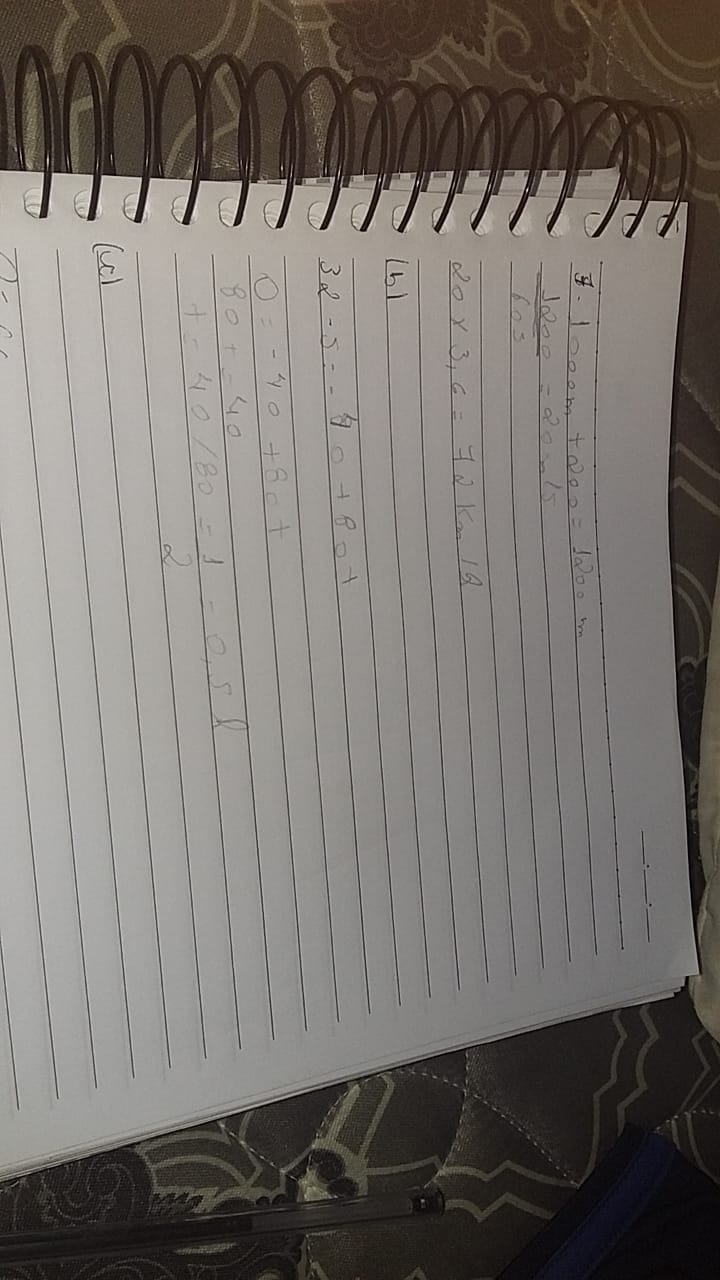 1. 1000m + 200 = 1200 m
1200 = 20m/s
60s
20 x 3,6 = 72 km/h
(b)
32 - s = -40 + 80t
0 = -40 + 80t
80t = 40
t = 40/80 = 1 = 0,5 h
2
(c)